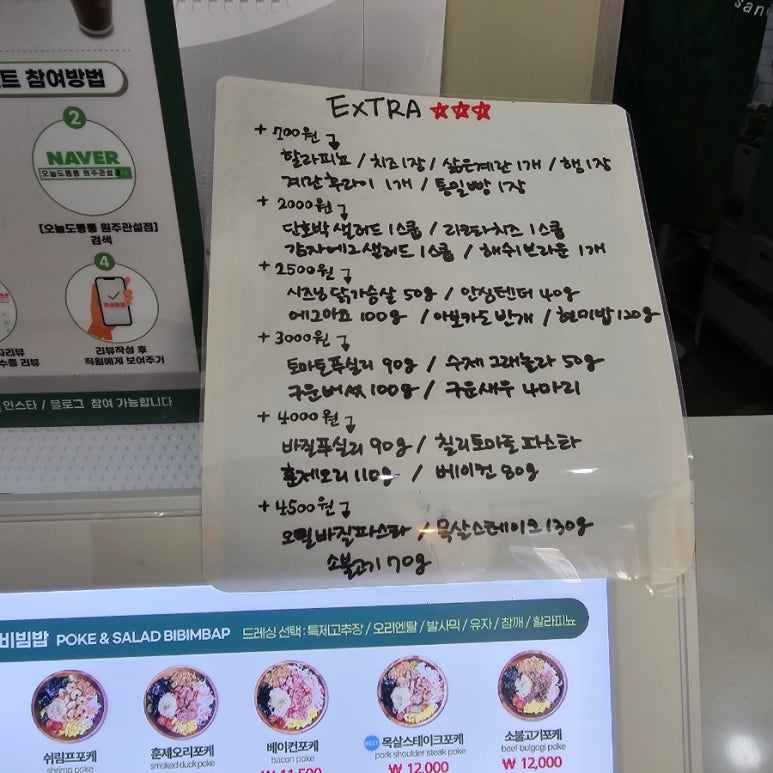 트 참여방법
2
NAVER
오늘도통통 원주관설점
[오늘도통통 원주관설점]
검색
4
리뷰작성 후
직원에게 보여주기
인스타 / 블로그 참여 가능합니다
EXTRA ☆☆☆
+ 700원
할라피뇨 / 치즈1장 / 삶은계란 1개 / 햄1장
계란후라이 1개 / 통밀빵 1장
+ 2000원
단호박 샐러드 1스쿱 / 리코타치즈 1스쿱
감자에그샐러드 1스쿱 / 해쉬브라운 1개
+ 2500원
시즈닝 닭가슴살 50g / 안심텐더 40g
에그마요 100g / 아보카도 반개 / 현미밥 120g
+ 3000원
토마토푸실리 90g / 수제 그래놀라 50g
구운버섯 100g / 구운새우 4마리
+ 4000원
바질푸실리 90g / 칠리토마토 파스타
훈제오리 110g / 베이컨 80g
+ 4500원
오일바질파스타 / 목살스테이크 130g
소불고기 70g
비빔밥 POKE & SALAD BIBIMBAP 드레싱 선택 : 특제고추장 / 오리엔탈 / 발사믹 / 유자 / 참깨 / 할라피뇨
쉬림프포케
shrimp poke
훈제오리포케
smoked duck poke
베이컨포케
bacon poke
₩ 11,500
BEST 목살스테이크포케
pork shoulder steak poke
₩ 12,000
소불고기포케
beef bulgogi poke
₩ 12,000